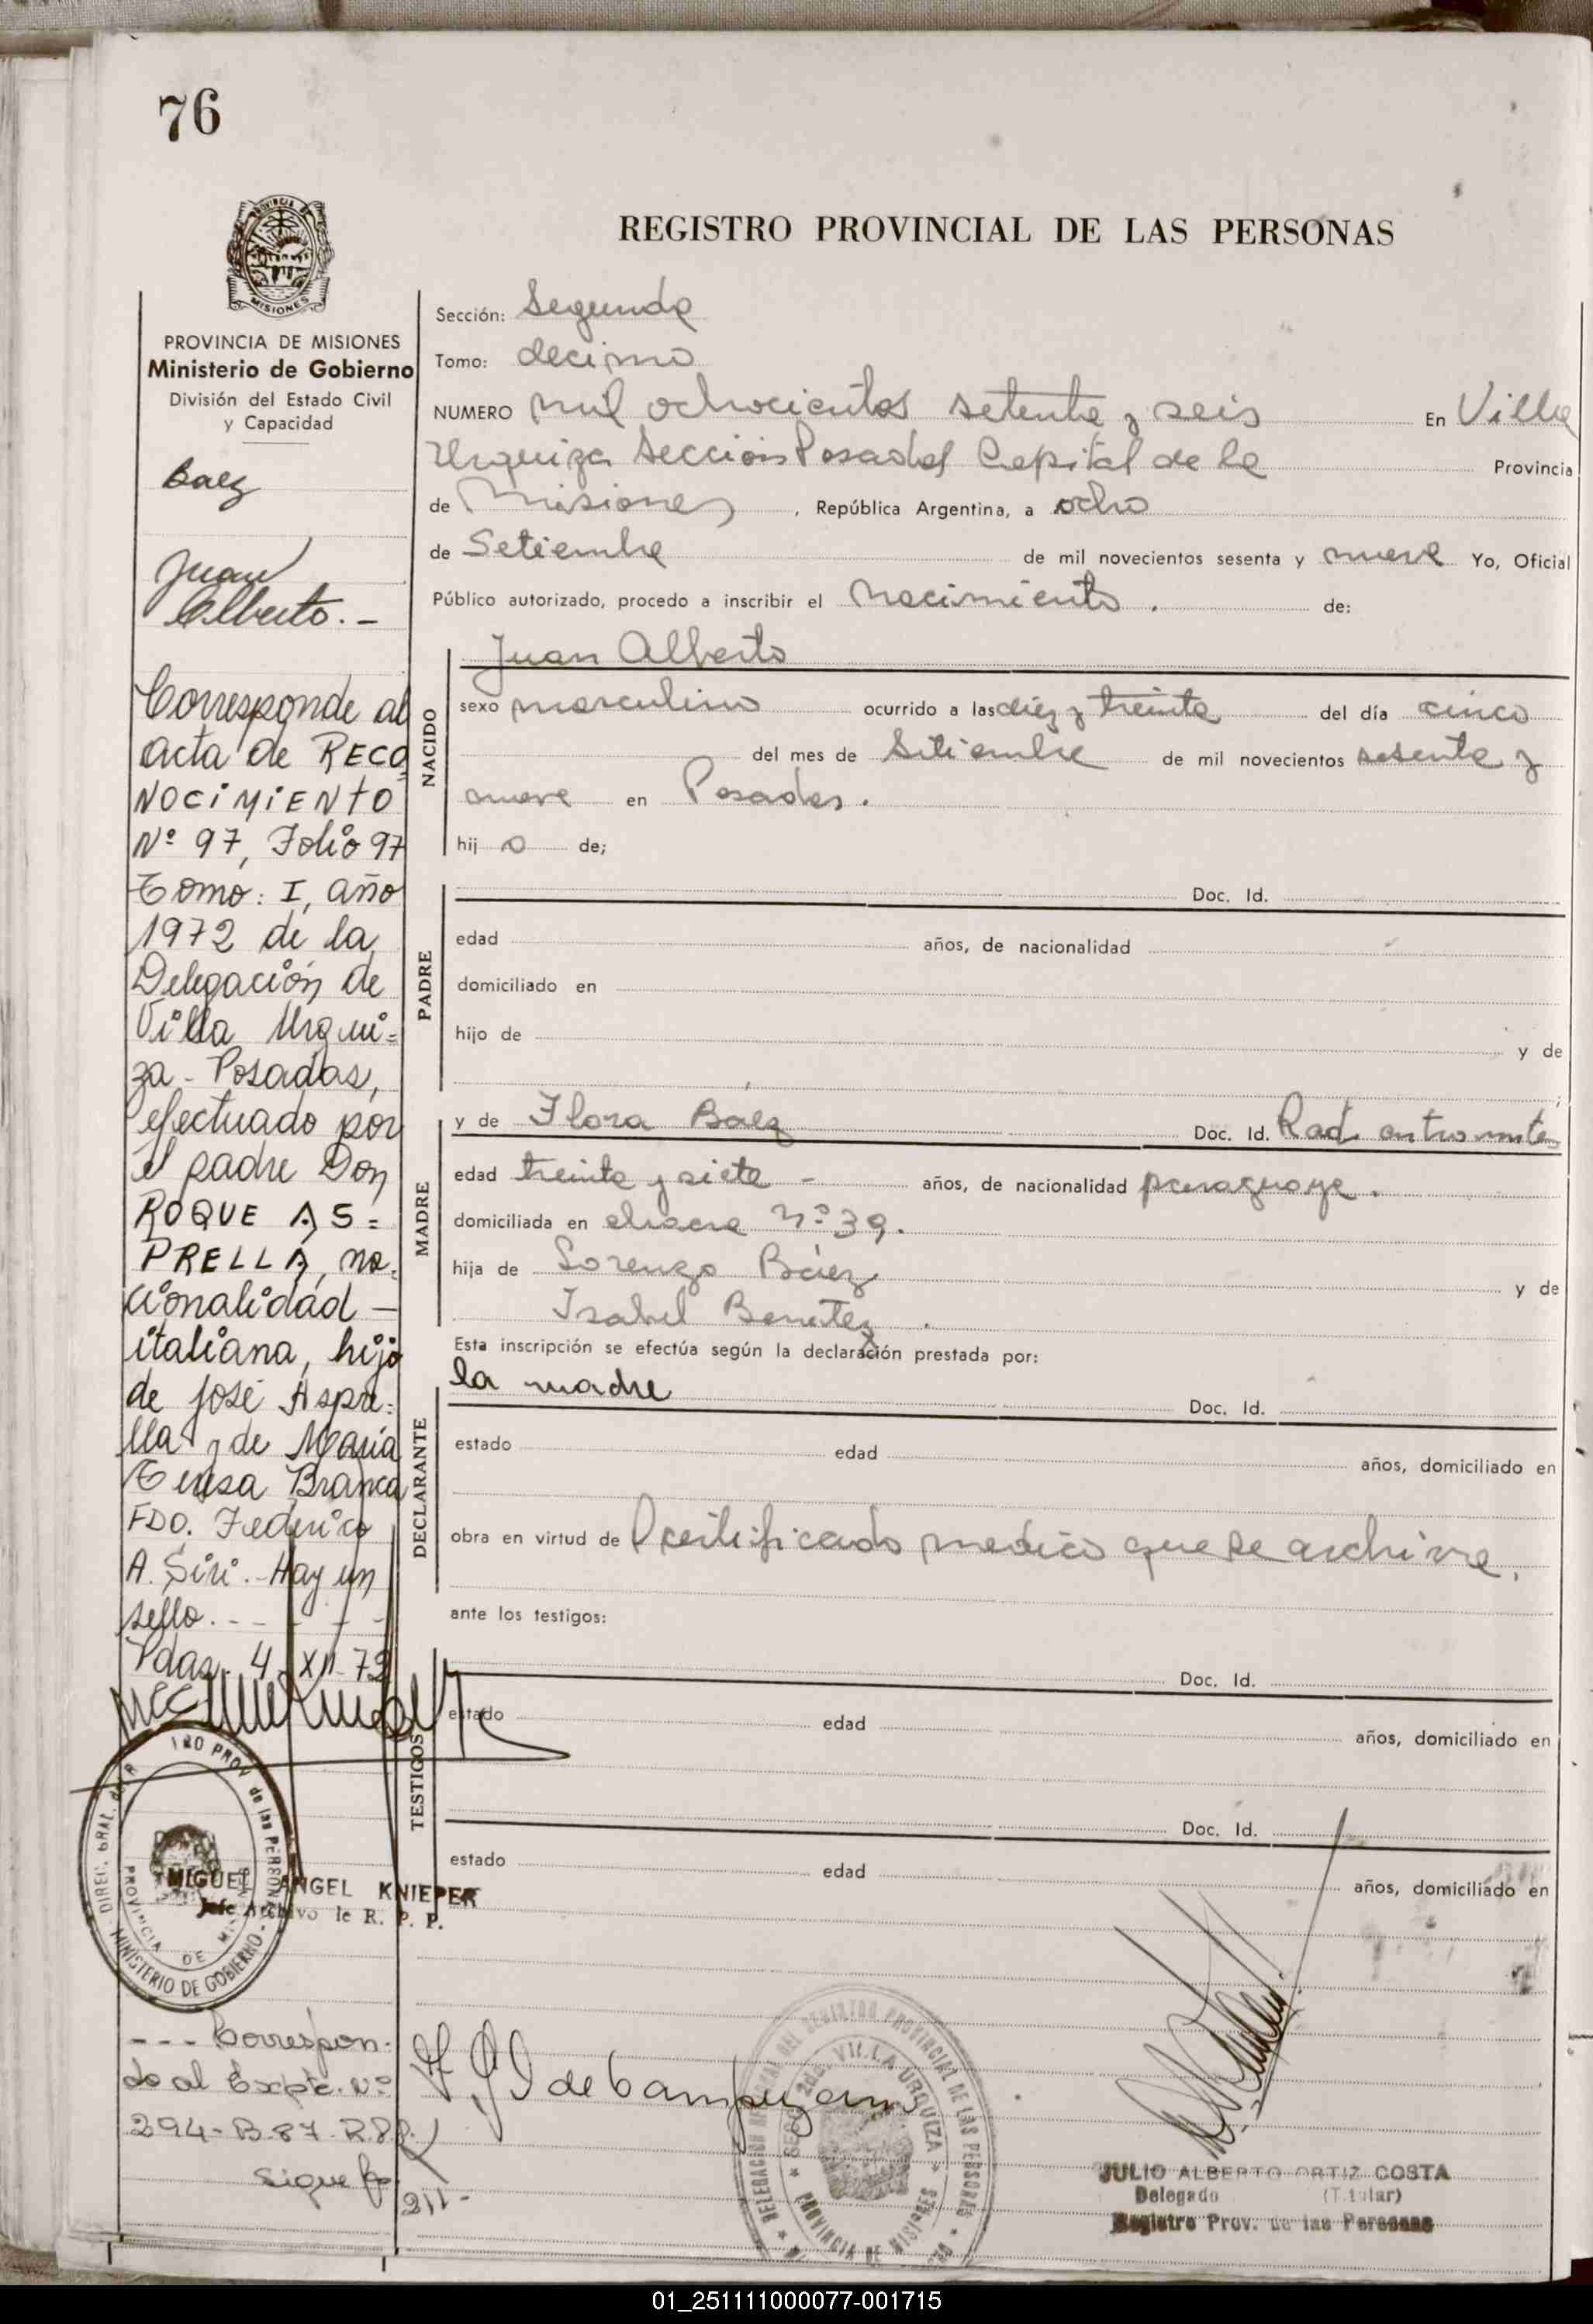 76
REGISTRO PROVINCIAL DE LAS PERSONAS
MISIONES
PROVINCIA DE MISIONES
Ministerio de Gobierno
División del Estado Civil
y Capacidad
Baez
Juan
Alberto.-
Corresponde al
acta de RECO
NOCIMIENTO
Nº 97, Folio 97
Tomo: I, año
1972 de la
Delegación de
Villa Urqui=
za - Posadas,
efectuado por
el padre Don
ROQUE AS=
PRELLA, na=
cionalidad -
italiana, hijo
de José Aspre=
lla y de María
Teresa Branca
FDO. Federico
A. Siri.- Hay un
sello.- - - -
Pdas. 4 XII-72
MIGUEL ANGEL KNIEPER
Jefe Archivo de R. P. P.
MINISTERIO DE GOBIERNO
PROVINCIA DE
--- Correspon-
do al Expte. Nº
294-B-87-R.P.P.
Sigue fº
211-
Sección: Segunda
Tomo: decimo
NUMERO mil ochocientos setenta y seis En Villa
Urquiza Sección Posadas Capital de la Provincia
de Misiones, República Argentina, a ocho
de Setiembre de mil novecientos sesenta y nueve Yo, Oficial
Público autorizado, procedo a inscribir el Nacimiento. de:
NACIDO
Juan Alberto
sexo masculino ocurrido a las diez y treinta del día cinco
del mes de Setiembre de mil novecientos sesenta y
nueve en Posadas.
hij o de;
PADRE
Doc. Id.
edad años, de nacionalidad
domiciliado en
hijo de y de
MADRE
y de Flora Baez Doc. Id. Rad. en tramite
edad treinta y siete - años, de nacionalidad paraguaya.
domiciliada en chacra nº 39.
hija de Lorenzo Báez y de
Isabel Benitez.
Esta inscripción se efectúa según la declaración prestada por:
DECLARANTE
la madre Doc. Id.
estado edad años, domiciliado en
obra en virtud de certificado medico que se archiva.
ante los testigos:
TESTIGOS
Doc. Id.
estado edad años, domiciliado en
Doc. Id.
estado edad años, domiciliado en
VILLA URQUIZA
PROVINCIA DE MISIONES
JULIO ALBERTO ORTIZ COSTA
Delegado (Titular)
Registro Prov. de las Personas
01_251111000077-001715